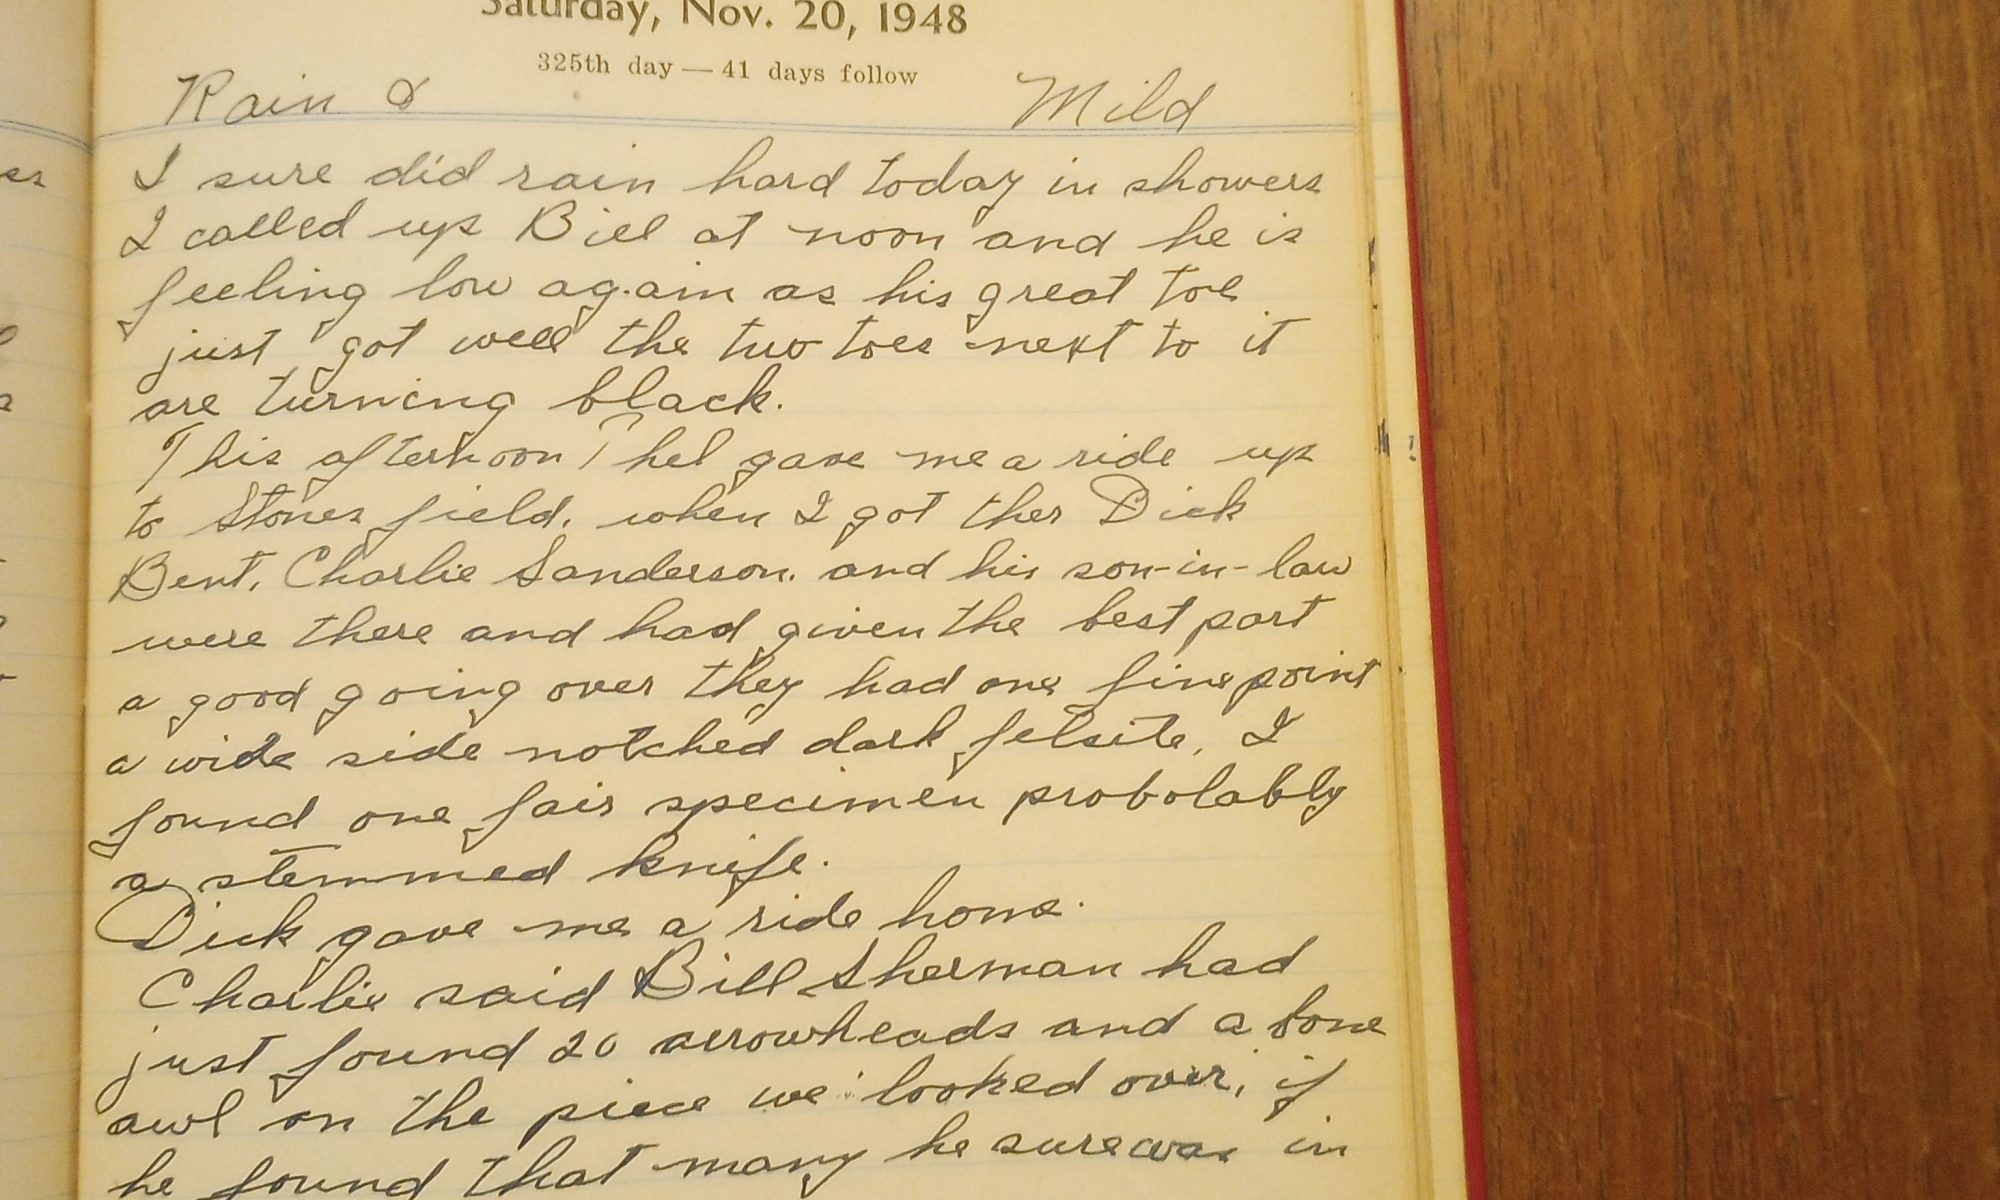 Saturday, Nov. 20, 1948
325th day — 41 days follow
Rain & Mild
I sure did rain hard today in showers
I called up Bill at noon and he is
feeling low again as his great toe
just got well the two toes next to it
are turning black.
This afternoon Thel gave me a ride up
to Stones field. when I got ther Dick
Bent, Charlie Sanderson. and his son-in-law
were there and had given the best part
a good going over they had one fine point
a wide side notched dark felsite, I
found one fair specimen probolably
a stemmed knife.
Dick gave me a ride home.
Charlie said Bill Sherman had
just found 20 arrowheads and a bone
awl on the piece we looked over, if
he found that many he sure was in